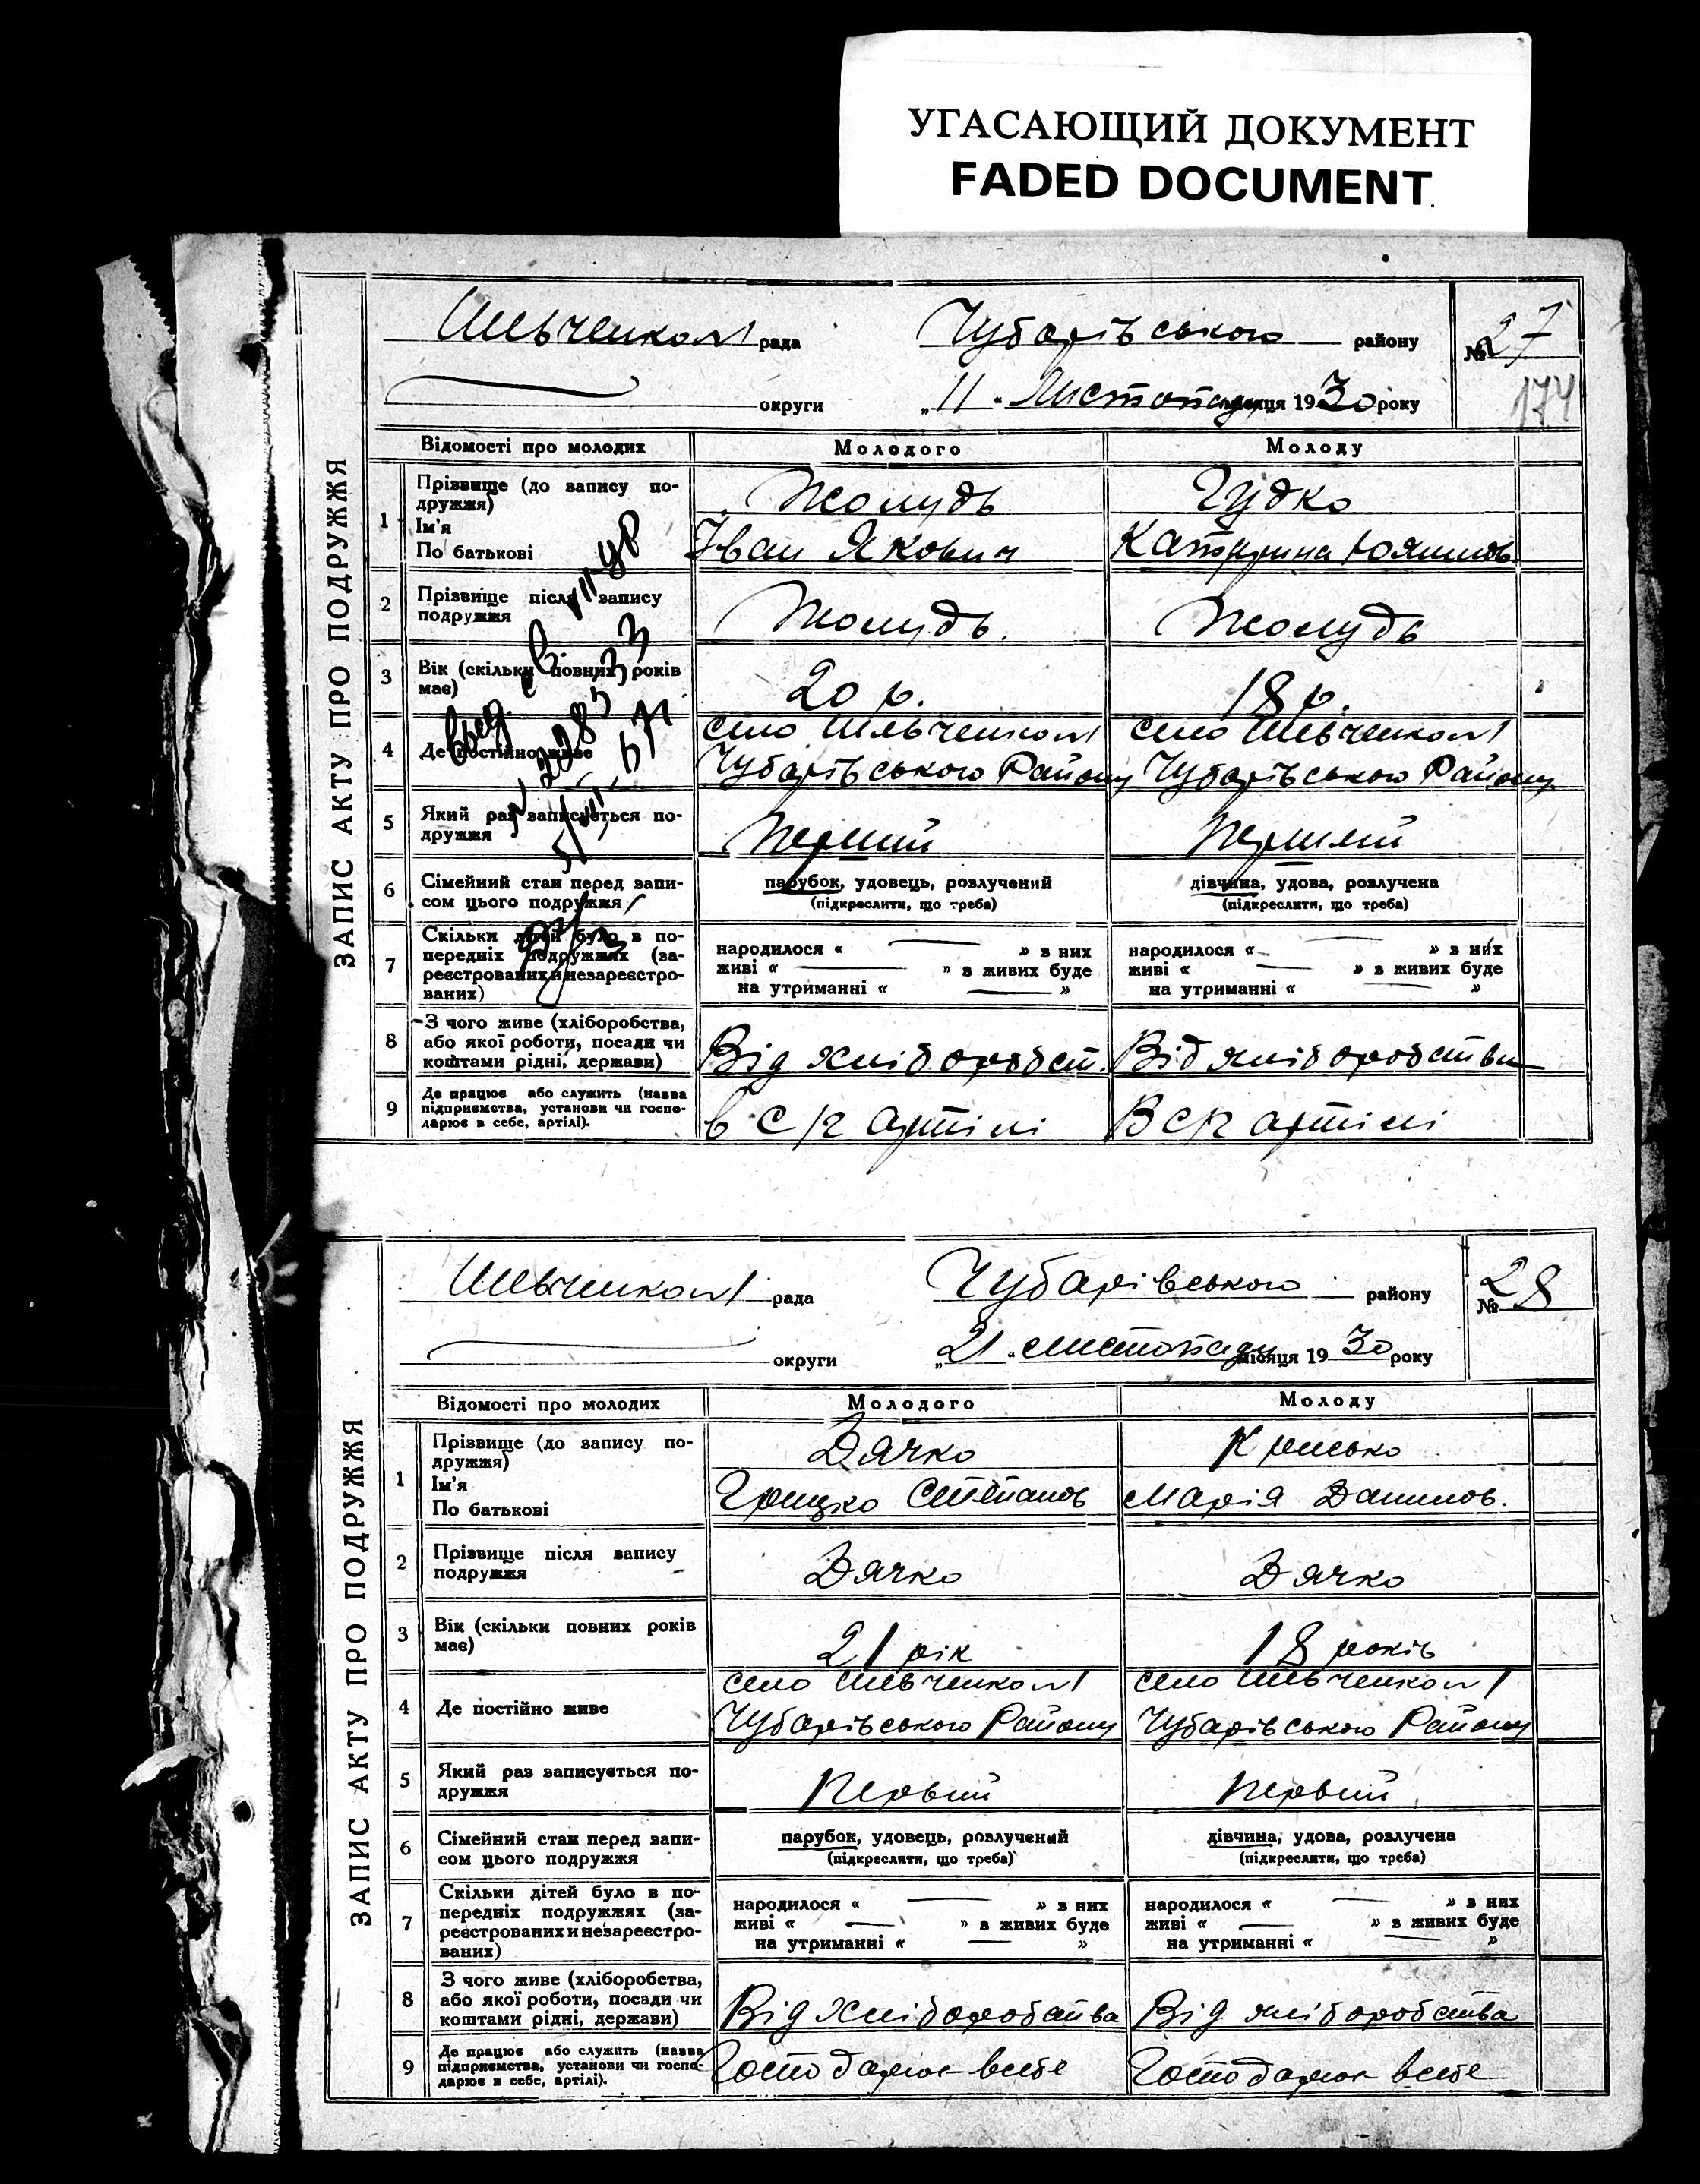 УГАСАЮЩИЙ ДОКУМЕНТ
FADED DOCUMENT
ЗАПИС АКТУ ПРО ПОДРУЖЖЯ
Шевченком 1 рада Чубарівського району № 27
174
округи „ 11 " Листопаду місяця 1930 року
Відомості про молодих Молодого Молоду
1 Прізвище (до запису по-
дружжя) Жолудь Гудко
Ім'я
По батькові Іван Якович Катрина
2 Прізвище після запису
подружжя Жолудь. Жолудь
3 Вік (скільки повних років
має) 20 р. 18 р.
4 Де постійно живе село Шевченком 1 село Шевченком 1
Чубарівського Району Чубарівського Району
5 Який раз записується по-
дружжя Перший Перший
6 Сімейний стан перед запи-
сом цього подружжя
парубок, удовець, розлучений дівчина, удова, розлучена
(підкреслити, що треба) (підкреслити, що треба)
7 Скільки дітей було в по-
передніх подружжях (за-
реєстрованих и незареєстро-
ваних)
народилося « » з них народилося « » з них
живі « » з живих буде живі « » з живих буде
на утриманні « » на утриманні « »
8 З чого живе (хліборобства,
або якої роботи, посади чи
коштами рідні, держави) Від хліборобст. Від хліборобства
9 Де працює або служить (назва
підприємства, установи чи госпо-
дарює в себе, артілі). в С/г артілі В с/г артілі
ЗАПИС АКТУ ПРО ПОДРУЖЖЯ
Шевченком 1 рада Чубарівського району № 28
округи „ 21 " листопаду місяця 1930 року
Відомості про молодих Молодого Молоду
1 Прізвище (до запису по-
дружжя) Дячко Крисько
Ім'я
По батькові Грицко Степанов Марія Данилов.
2 Прізвище після запису
подружжя Дячко Дячко
3 Вік (скільки повних років
має) 21 рік 18 років
4 Де постійно живе село Шевченком 1 село Шевченком 1
Чубарівського Району Чубарівського Району
5 Який раз записується по-
дружжя Первий Первий
6 Сімейний стан перед запи-
сом цього подружжя
парубок, удовець, розлучений дівчина, удова, розлучена
(підкреслити, що треба) (підкреслити, що треба)
7 Скільки дітей було в по-
передніх подружжях (за-
реєстрованих и незареєстро-
ваних)
народилося « » з них народилося « » з них
живі « » з живих буде живі « » з живих буде
на утриманні « » на утриманні « »
8 З чого живе (хліборобства,
або якої роботи, посади чи
коштами рідні, держави) Від Хліборобства Від хліборобства
9 Де працює або служить (назва
підприємства, установи чи госпо-
дарює в себе, артілі). Господарює в себе Господарює в себе